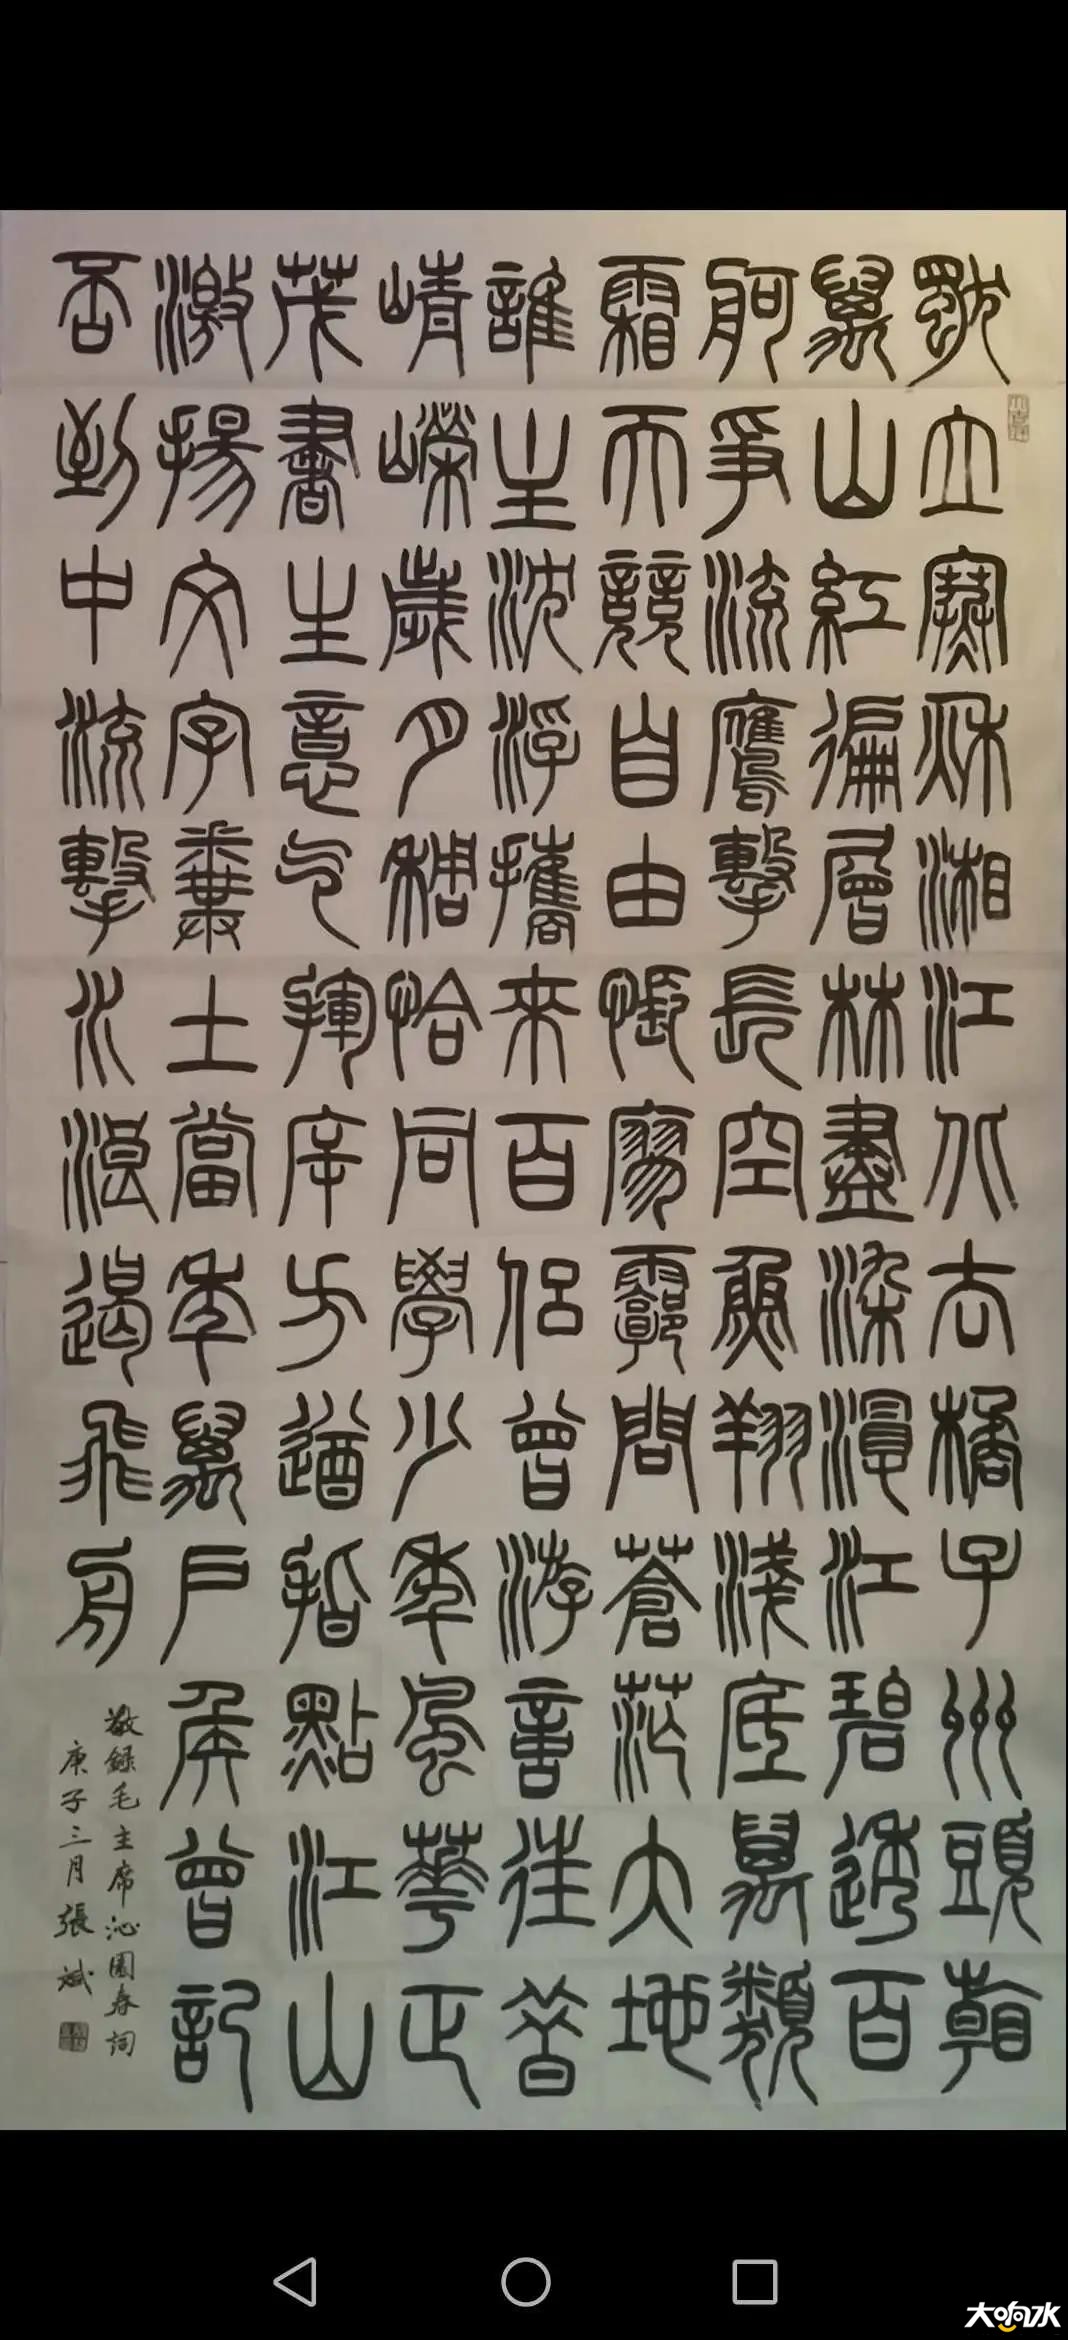 獨立寒秋湘江北去橘子州頭看
萬山紅徧層林盡染漫江碧透百
舸爭流鷹擊長空魚翔淺底萬類
霜天競自由悵寥廓問蒼茫大地
誰主沈浮攜來百侶曾游憶往昔
崢嶸歲月稠恰同學少年風華正
茂書生意气揮斥方遒指點江山
激揚文字糞土當年萬戶侯曾記
否到中流擊水浪遏飛舟
敬錄毛主席沁園春詞
庚子三月張斌
大响水